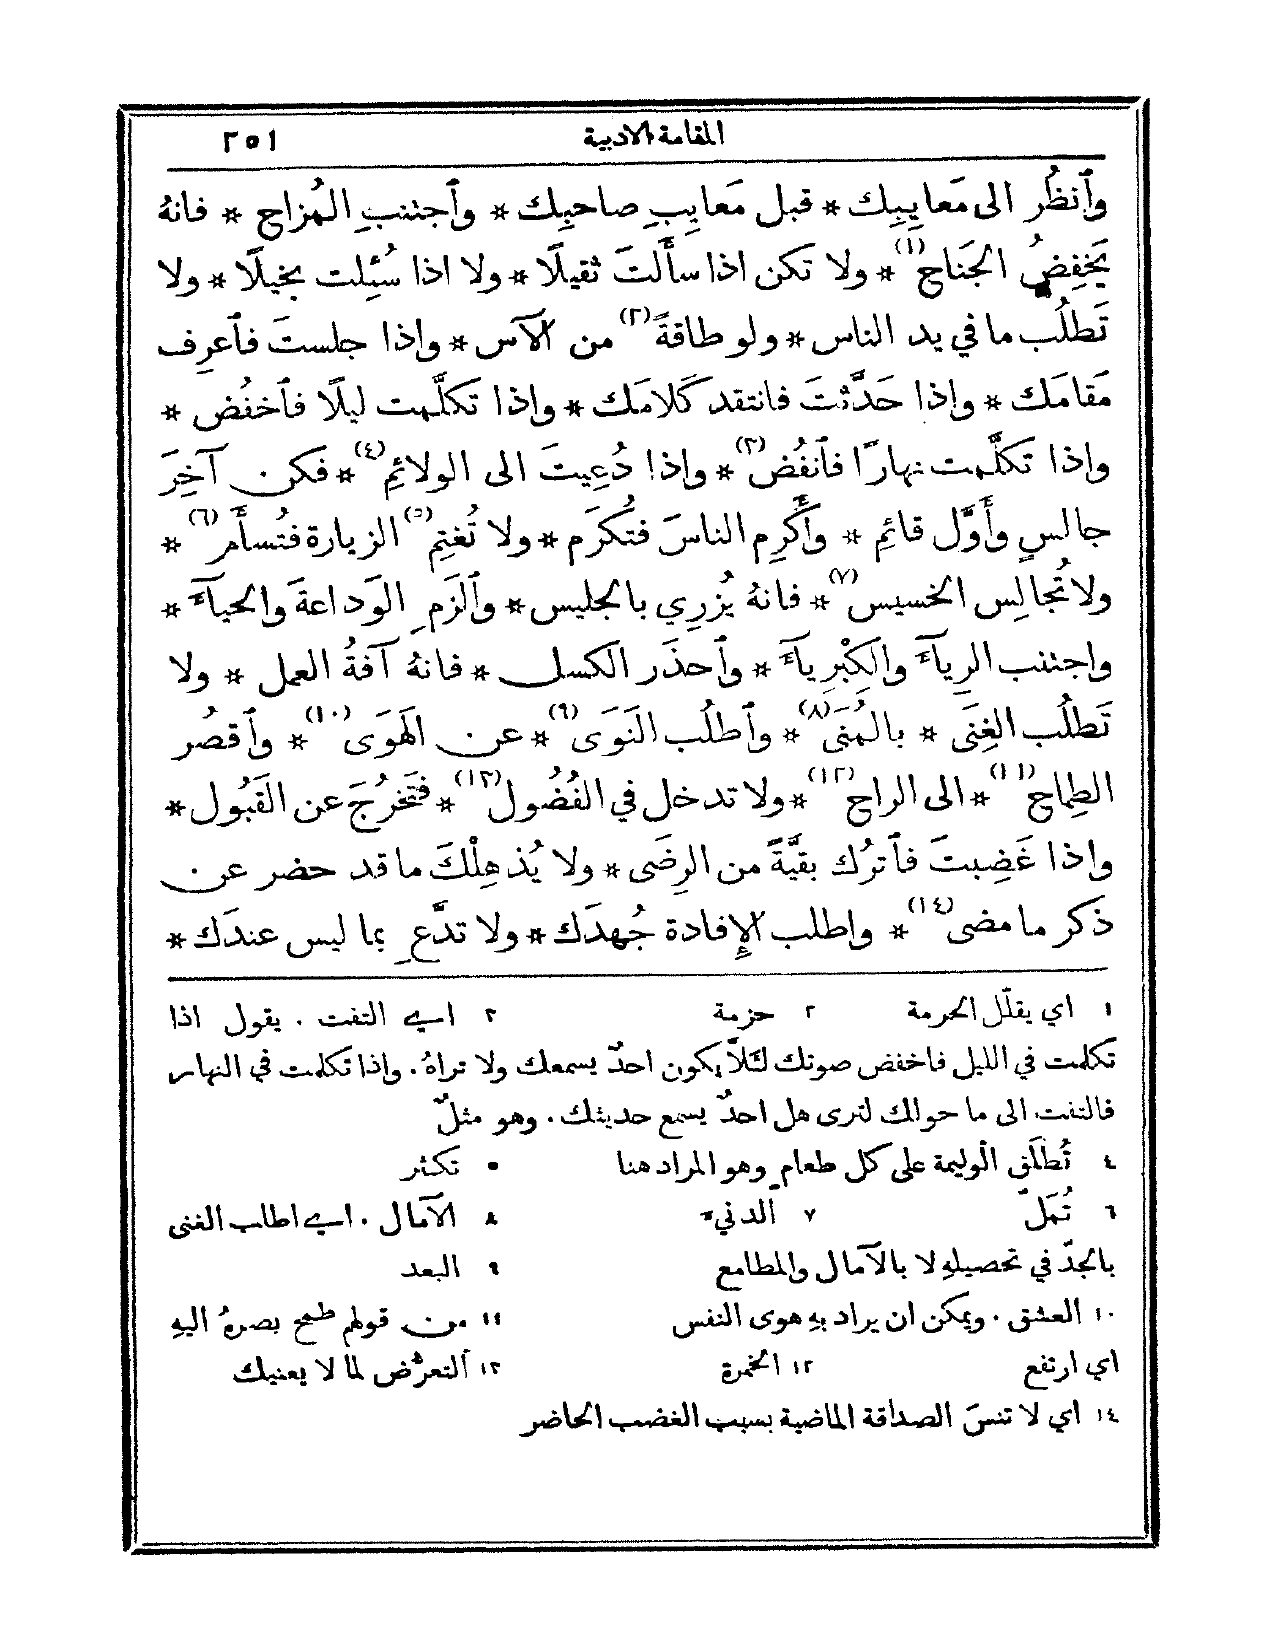 المقامة الادبية ٢٥١
وٱنظُر الى مَعايِبِك * قبل مَعايِبِ صاحبِك * وٱجتنبِ المُزاح * فانهُ
يَخفِضُ الجَناح(١) * ولا تكن اذا سأَلتَ ثقيلًا * ولا اذا سُئِلت بخيلًا * ولا
تَطلُب ما في يد الناس * ولو طاقةً(٢) من الآس * واذا جلستَ فٱعرِف
مَقامَك * واذا حَدَّثتَ فانتقد كَلامَك * واذا تكلَّمت ليلًا فٱخفُض *
واذا تكلَّمت نهارًا فٱنفُض(٣) * واذا دُعِيتَ الى الولائِم(٤) * فكن آخِرَ
جالسٍ وأَوَّل قائِم * وأَكرِم الناسَ فتُكرَم * ولا تُغتِم(٥) الزيارة فتُسأَم(٦) *
ولا تُجالِس الخسيس(٧) * فانهُ يُزرِي بالجليس * وٱلزَمِ الوَداعةَ والحيآءَ *
واجتنب الرِيآءَ والكِبْرِيآءَ * وٱحذَر الكسل * فانهُ آفةُ العمل * ولا
تَطلُب الغِنَى * بالمُنَى(٨) * وٱطلُب النَوَى(٩) * عن الهَوَى(١٠) * وٱقصُر
الطِماح(١١) * الى الراح(١٢) * ولا تدخل في الفُضُول(١٣) * فتَخرُجَ عن القَبُول *
واذا غَضِبتَ فٱترُك بقيَّةً من الرِضَى * ولا يُذهِلْكَ ما قد حضر عن
ذكر ما مضى(١٤) * واطلب الإِفادة جُهدَك * ولا تدَّعِ بما ليس عندَك *
١ اي يقلّل الحرمة ٢ حزمة ٣ اي التفت . يقول اذا
تكلمت في الليل فاخفض صوتك لئلَّا يكون احدٌ يسمعك ولا تراهُ . واذا تكلمت في النهار
فالتفت الى ما حوالك لترى هل احدٌ يسمع حديثك . وهو مثلٌ
٤ تُطلَق الوليمة على كل طعامٍ وهو المراد هنا ٥ تكثر
٦ تُمَلّ ٧ الدنيء ٨ الآمال . اي اطلب الغنى
بالجدّ في تحصيلهِ لا بالآمال والمطامع ٩ البعد
١٠ العشق . ويمكن ان يراد بهِ هوى النفس ١١ من قولهم طمح بصرهُ اليهِ
اي ارتفع ١٢ الخمرة ١٣ التعرُّض لما لا يعنيك
١٤ اي لا تنسَ الصداقة الماضية بسبب الغضب الحاضر